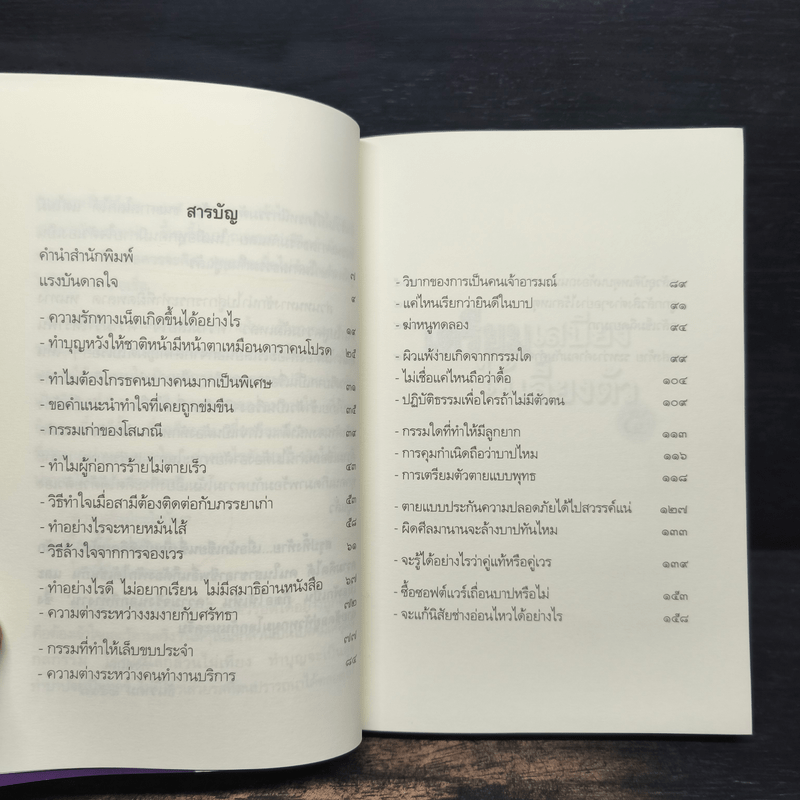 สารบัญ
คำนำสำนักพิมพ์ ๗
แรงบันดาลใจ ๙
- ความรักทางเน็ตเกิดขึ้นได้อย่างไร ๑๙
- ทำบุญหวังให้ชาติหน้ามีหน้าตาเหมือนดาราคนโปรด ๒๕
- ทำไมต้องโกรธคนบางคนมากเป็นพิเศษ ๓๑
- ขอคำแนะนำทำใจที่เคยถูกข่มขืน ๓๕
- กรรมเก่าของโสเภณี ๓๙
- ทำไมผู้ก่อการร้ายไม่ตายเร็ว ๔๓
- วิธีทำใจเมื่อสามีต้องติดต่อกับภรรยาเก่า ๕๓
- ทำอย่างไรจะหายหมั่นไส้ ๕๘
- วิธีล้างใจจากการจองเวร ๖๑
- ทำอย่างไรดี ไม่อยากเรียน ไม่มีสมาธิอ่านหนังสือ ๖๗
- ความต่างระหว่างงมงายกับศรัทธา ๗๒
- กรรมที่ทำให้เล็บขบประจำ ๗๗
- ความต่างระหว่างคนทำงานบริการ ๘๔
- วิบากของการเป็นคนเจ้าอารมณ์ ๘๙
- แค่ไหนเรียกว่ายินดีในบาป ๙๑
- ฆ่าหนูทดลอง ๙๔
- ผิวแพ้ง่ายเกิดจากกรรมใด ๙๙
- ไม่เชื่อแค่ไหนถือว่าดื้อ ๑๐๔
- ปฏิบัติธรรมเพื่อใครถ้าไม่มีตัวตน ๑๐๙
- กรรมใดที่ทำให้มีลูกยาก ๑๑๓
- การคุมกำเนิดถือว่าบาปไหม ๑๑๖
- การเตรียมตัวตายแบบพุทธ ๑๑๘
- ตายแบบประกันความปลอดภัยได้ไปสวรรค์แน่ ๑๒๗
- ผิดศีลมานานจะล้างบาปทันไหม ๑๓๓
- จะรู้ได้อย่างไรว่าคู่แท้หรือคู่เวร ๑๓๙
- ซื้อซอฟต์แวร์เถื่อนบาปหรือไม่ ๑๕๓
- จะแก้นิสัยช่างอ่อนไหวได้อย่างไร ๑๕๘